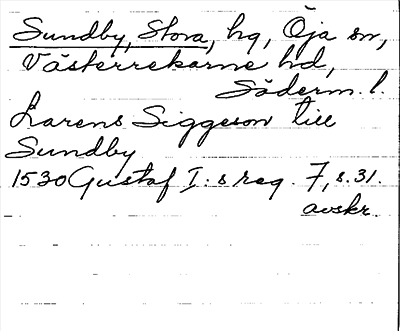 Sundby, Stora, hg, Öja sn,
Västerrekarne hd,
Söderm. l.
Larens Siggeson till
Sundby
1530 Gustaf I:s reg. 7, s. 31.
avskr.